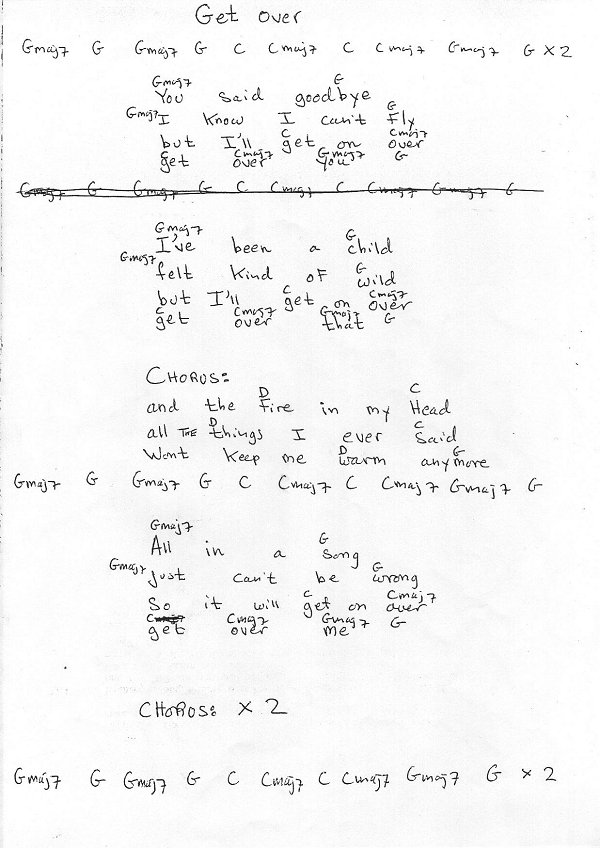 Get over
Gmaj7 G Gmaj7 G C Cmaj7 C Cmaj7 Gmaj7 G x2
Gmaj7 G
You said goodbye
Gmaj7 G
I know I can't fly
C Cmaj7
but I'll get on over
Cmaj7 Gmaj7 G
get over you
Gmaj7 G Gmaj7 G C Cmaj7 C Cmaj7 Gmaj7 G
Gmaj7 G
I've been a child
Gmaj7 G
felt kind of wild
C Cmaj7
but I'll get on over
C Cmaj7 Gmaj7 G
get over that
CHORUS:
D C
and the fire in my Head
D C
all THE things I ever Said
D G
Wont keep me warm anymore
Gmaj7 G Gmaj7 G C Cmaj7 C Cmaj7 Gmaj7 G
Gmaj7 G
All in a song
Gmaj7 G
just can't be wrong
C Cmaj7
So it will get on over
Cmaj7 Gmaj7 G
get over me
CHORUS: x 2
Gmaj7 G Gmaj7 G C Cmaj7 C Cmaj7 Gmaj7 G x 2